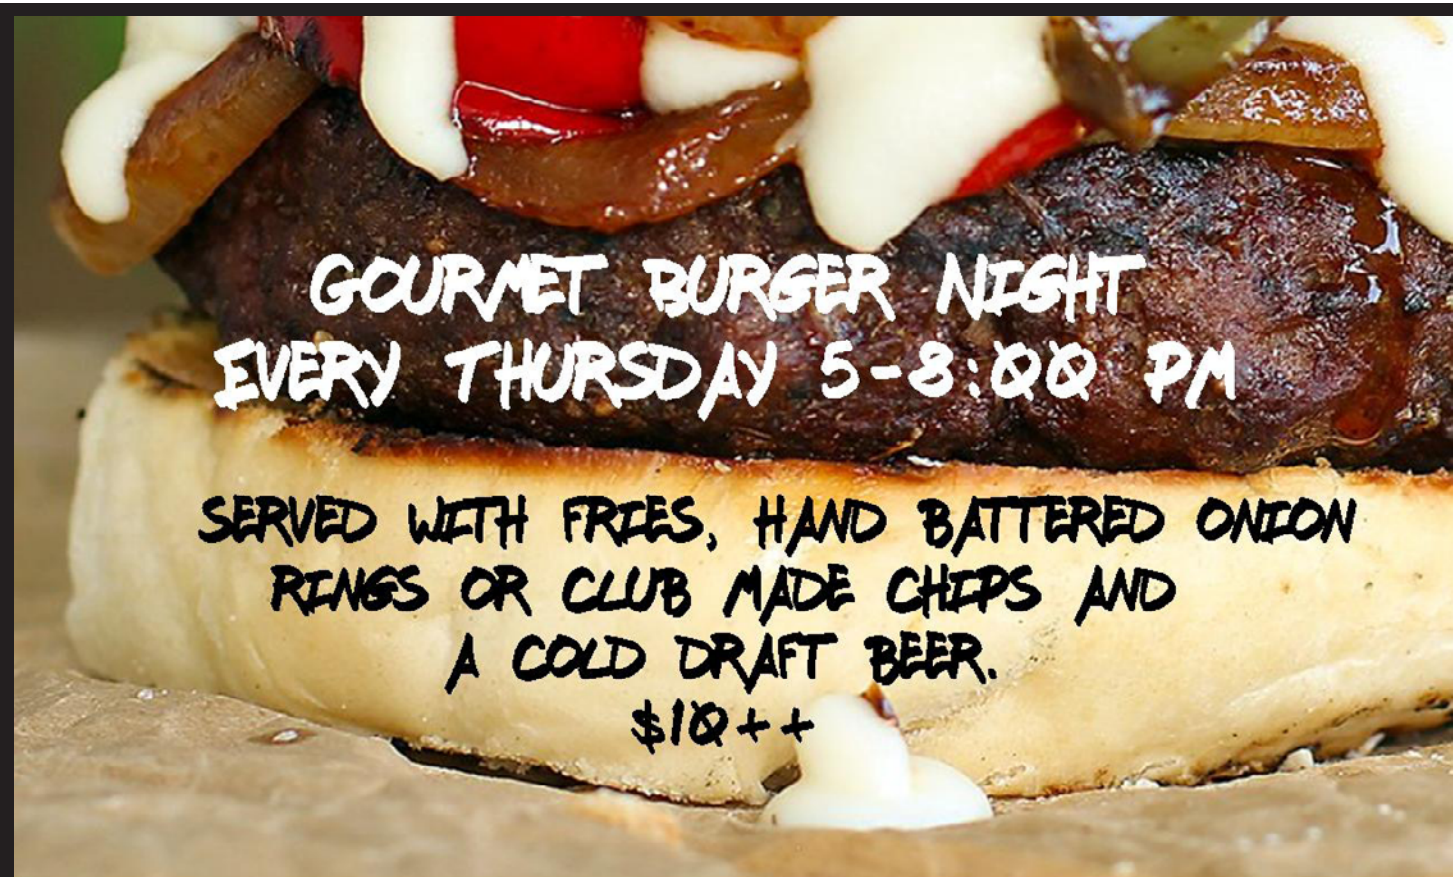 GOURMET BURGER NIGHT
EVERY THURSDAY 5-8:00 PM
SERVED WITH FRIES, HAND BATTERED ONION
RINGS OR CLUB MADE CHIPS AND
A COLD DRAFT BEER.
$10++